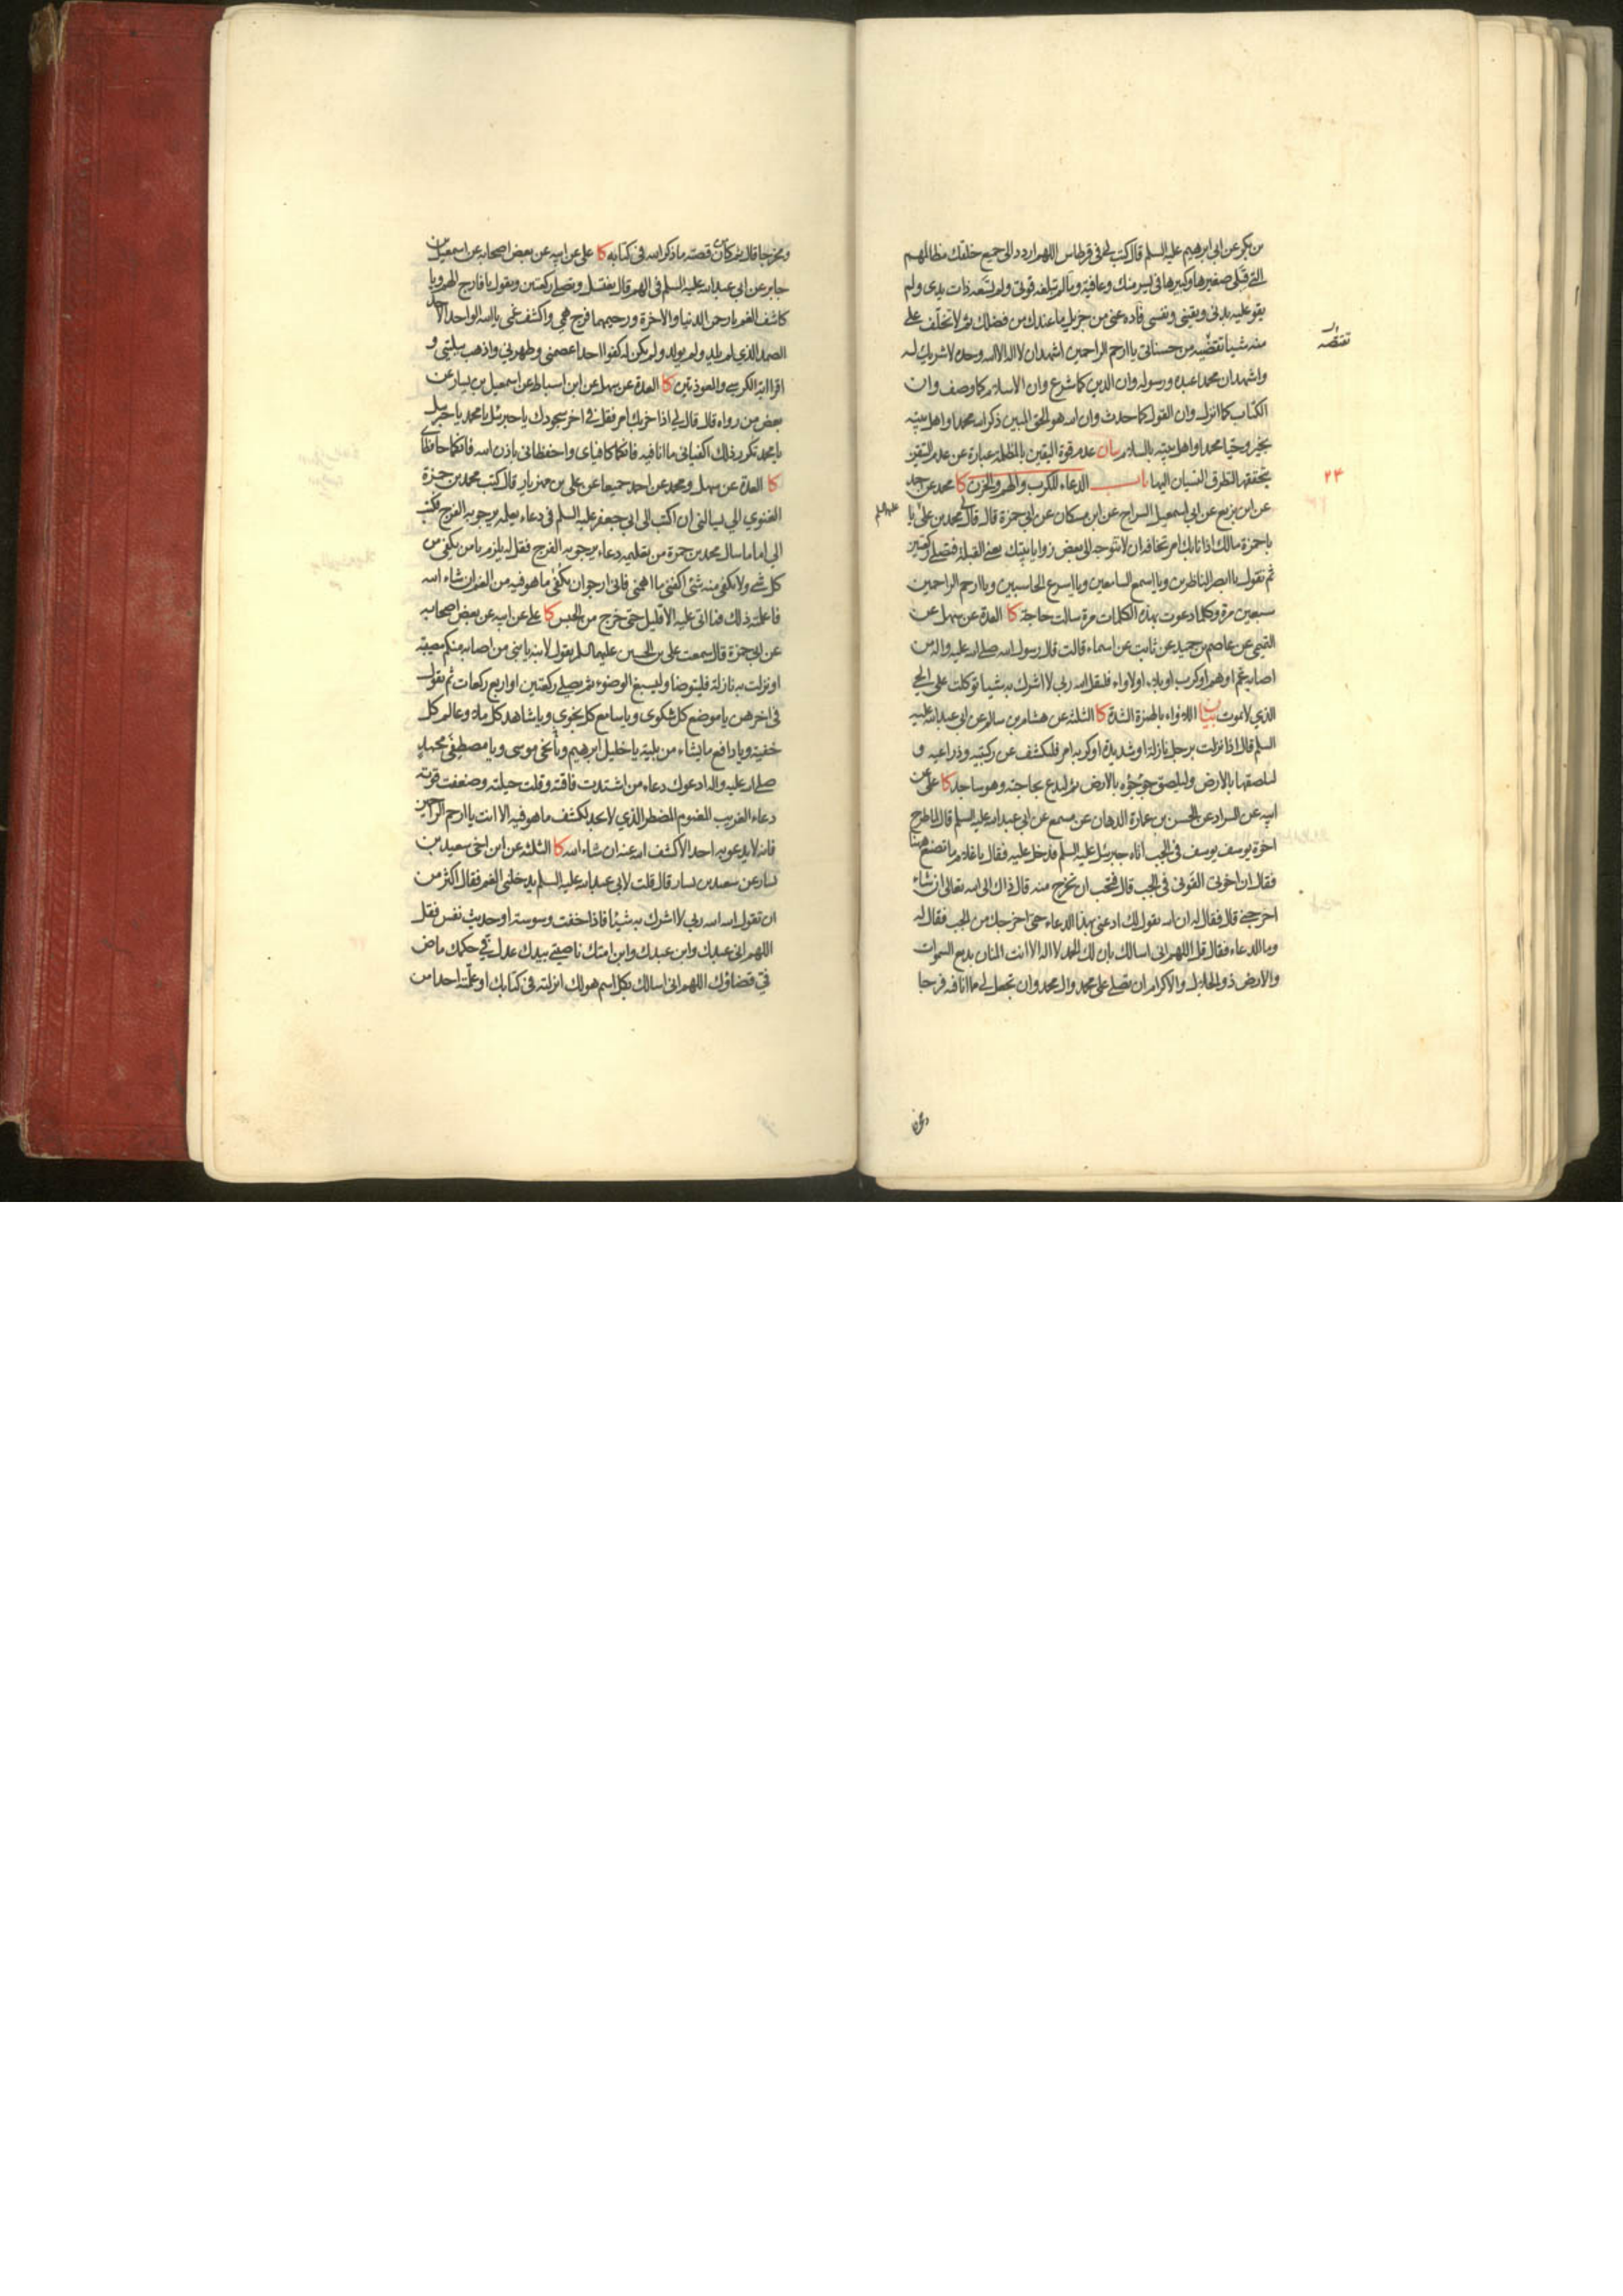 بن بكر عن ابي ابرهيم عليه السلم قال كتب لي في قرطاس اللهم اردد الى جميع خلقك مظالمهم
التي قبلي صغيرها وكبيرها في يسر منك وعافية وما لم تبلغه قوتي ولم تسعه ذات يدي ولم
يقو عليه بدني ويقيني ونفسي فاده عني من جزيل ما عندك من فضلك ثم لا تخلف علي
منه شيئا تقضيه من حسناتي يا ارحم الراحمين اشهد ان لا اله الا الله وحده لا شريك له
واشهد ان محمدا عبده ورسوله وان الدين كما شرع وان الاسلام كما وصف وان
الكتاب كما انزل وان القول كما حدث وان الله هو الحق المبين ذكر الله محمدا واهل بيته
بخير وحيا محمدا واهل بيته بالسلام بيان عدم قوة اليقين بالمظلمة عبارة عن عدم التيقن
بتحققها لتطرق النسيان اليها باب الدعاء للكرب والهم والحزن كا محمد عن احمد
عن ابن بزيع عن ابي اسمعيل السراج عن ابن مسكان عن ابي حمزة قال قال لي محمد بن علي يا
عليهما السلم
با حمزة مالك اذا نابك امر تخافه ان لا تتوجه الى بعض زوايا بيتك يعني القبلة فتصلي ركعتين
ثم تقول يا ابصر الناظرين ويا اسمع السامعين ويا اسرع الحاسبين ويا ارحم الراحمين
سبعين مرة وكلما دعوت بهذه الكلمات مرة سالت حاجة كا العدة عن سهل عن
التميمي عن عاصم بن حميد عن ثابت عن اسماء قالت قال رسول الله صلى الله عليه واله من
اصابه غم او هم او كرب او بلاء او لاواء فليقل الله ربي لا اشرك به شيئا توكلت على الحي
الذي لا يموت بيان اللاواء بالهمزة الشدة كا الثلثة عن هشام بن سالم عن ابي عبد الله عليه
السلم قال اذا نزلت برجل نازلة او شديدة او كربه امر فليكشف عن ركبتيه وذراعيه و
ليلصقهما بالارض وليلصق جؤجؤه بالارض ثم ليدع بحاجته وهو ساجد كا علي عن
ابيه عن السراد عن الحسن بن عمارة الدهان عن مسمع عن ابي عبد الله عليه السلم قال لما طرح
اخوة يوسف يوسف في الجب اتاه جبرئيل عليه السلم فدخل عليه فقال يا غلام ما تصنع ههنا
فقال ان اخوتي القوني في الجب قال فتحب ان تخرج منه قال ذاك الى الله تعالى ان شاء
اخرجني قال فقال له ان الله يقول لك ادعني بهذا الدعاء حتى اخرجك من الجب فقال له
وما الدعاء فقال قل اللهم اني اسالك بان لك الحمد لا اله الا انت المنان بديع السموات
والارض ذو الجلال والاكرام ان تصلي على محمد وال محمد وان تجعل لي مما انا فيه فرجا
۲۴
ومخرجا قال ثم كان من قصته ما ذكر الله في كتابه كا علي عن ابيه عن بعض اصحابه عن اسمعيل بن
جابر عن ابي عبد الله عليه السلم في الهم قال يغتسل ويصلي ركعتين ويقول يا فارج الهم ويا
كاشف الغم يا رحمن الدنيا والاخرة ورحيمهما فرج همي واكشف غمي يا الله الواحد الاحد
الصمد الذي لم يلد ولم يولد ولم يكن له كفوا احد اعصمني وطهرني واذهب ببليتي و
اقرا اية الكرسي والمعوذتين كا العدة عن سهل عن ابن اسباط عن اسمعيل بن يسار عن
بعض من رواه قال قال لي اذا حزبك امر فقل في اخر سجودك يا جبرئيل يا محمد يا جبرئيل
يا محمد تكرر ذلك اكفياني ما انا فيه فانكما كافياي واحفظاني باذن الله فانكما حافظاي
كا العدة عن سهل ومحمد عن احمد جميعا عن علي بن مهزيار قال كتب محمد بن حمزة
الغنوي الي يسالني ان اكتب الى ابي جعفر عليه السلم في دعاء يعلمه يرجو به الفرج فكتب
الي اما ما سال محمد بن حمزة من تعليمه دعاء يرجو به الفرج فقل له يلزم يا من يكفي من
كل شيء ولا يكفي منه شيء اكفني ما اهمني فاني ارجو ان يكفي ما هو فيه من الغم ان شاء الله
فاعلمته ذلك فما اتى عليه الا قليل حتى خرج من الحبس كا علي عن ابيه عن بعض اصحابه
عن ابي حمزة قال سمعت علي بن الحسين عليهما السلم يقول لابنه يا بني من اصابه منكم مصيبة
او نزلت به نازلة فليتوضا وليسبغ الوضوء ثم يصلي ركعتين او اربع ركعات ثم يقول
في اخرهن يا موضع كل شكوى ويا سامع كل نجوى ويا شاهد كل ملاء وعالم كل
خفية ويا دافع ما يشاء من بلية يا خليل ابرهيم ويا نجي موسى ويا مصطفي محمد
صلى الله عليه واله ادعوك دعاء من اشتدت فاقته وقلت حيلته وضعفت قوته
دعاء الغريب المغموم المضطر الذي لا يجد لكشف ما هو فيه الا انت يا ارحم الراحمين
فانه لا يدعو به احد الا كشف الله عنه ان شاء الله كا الثلثة عن ابن اخي سعيد بن
يسار عن سعيد بن يسار قال قلت لابي عبد الله عليه السلم يدخلني الغم فقال اكثر من
ان تقول الله الله ربي لا اشرك به شيئا فاذا خفت وسوسة او حديث نفس فقل
اللهم اني عبدك وابن عبدك وابن امتك ناصيتي بيدك عدل في حكمك ماض
في قضاؤك اللهم اني اسالك بكل اسم هو لك انزلته في كتابك او علمته احدا من